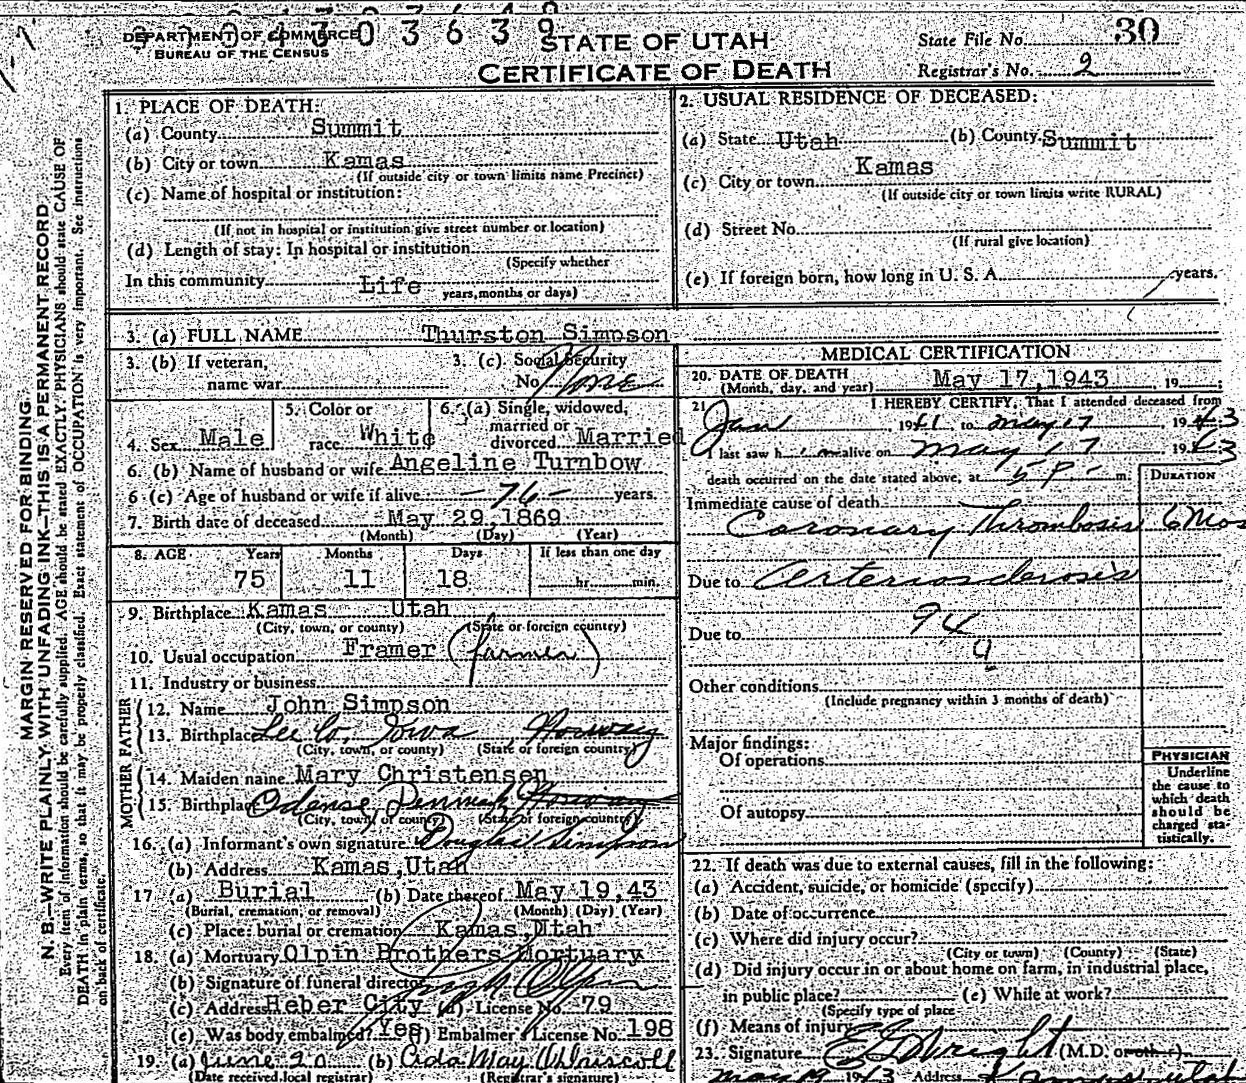 DEPARTMENT OF COMMERCE
BUREAU OF THE CENSUS
3 0 3 6 3 9
STATE OF UTAH
CERTIFICATE OF DEATH
State File No. 30
Registrar's No. 2
MARGIN RESERVED FOR BINDING
N. B.—WRITE PLAINLY WITH UNFADING INK—THIS IS A PERMANENT RECORD
Every item of information should be carefully supplied. AGE should be stated EXACTLY. PHYSICIANS should state CAUSE OF
DEATH in plain terms, so that it may be properly classified. Exact statement of OCCUPATION is very important. See instructions
on back of certificate.
1. PLACE OF DEATH:
(a) County Summit
(b) City or town Kamas
(If outside city or town limits name Precinct)
(c) Name of hospital or institution:
(If not in hospital or institution give street number or location)
(d) Length of stay: In hospital or institution
(Specify whether
In this community Life years, months or days)
2. USUAL RESIDENCE OF DECEASED:
(a) State Utah (b) County Summit
(c) City or town Kamas
(If outside city or town limits write RURAL)
(d) Street No.
(If rural give location)
(e) If foreign born, how long in U. S. A. years.
3. (a) FULL NAME Thurston Simpson
3. (b) If veteran,
name war
3. (c). Social Security
No. None
4. Sex Male
5. Color or
race White
6. (a) Single, widowed,
married or
divorced Married
6. (b) Name of husband or wife Angeline Turnbow
6 (c) Age of husband or wife if alive -76- years.
7. Birth date of deceased May 29,1869
(Month) (Day) (Year)
8. AGE Years Months Days If less than one day
75 11 18 hr. min.
9. Birthplace Kamas Utah
(City, town, or county) (State or foreign country)
10. Usual occupation Framer (farmer)
11. Industry or business
FATHER
12. Name John Simpson
13. Birthplace Lee Co, Iowa Norway
(City, town, or county) (State or foreign country)
MOTHER
14. Maiden name Mary Christensen
15. Birthplace Odense, Denmark Norway
(City, town, or county) (State or foreign country)
16. (a) Informant's own signature Douglas Simpson
(b) Address Kamas,Utah
17 (a) Burial (b) Date thereof May 19,43
(Burial, cremation, or removal) (Month) (Day) (Year)
(c) Place: burial or cremation Kamas,Utah
18. (a) Mortuary Olpin Brothers Mortuary
(b) Signature of funeral director Olpin
(c) Address Heber City (d) License No. 79
(e) Was body embalmed? Yes (f) Embalmer's License No. 198
19 (a) June 20 (b) Ada May Driscoll
(Date received local registrar) (Registrar's signature)
MEDICAL CERTIFICATION
20. DATE OF DEATH
(Month, day, and year) May 17,1943 , 19 ;
21 I HEREBY CERTIFY, That I attended deceased from
Jan , 1941 to May 17 1943
I last saw him alive on May 17 1943
death occurred on the date stated above, at 5 P. m.
DURATION
Immediate cause of death
Coronary Thrombosis 6 Mos
Due to Arteriosclerosis
94
Due to
a
Other conditions
(Include pregnancy within 3 months of death)
Major findings:
Of operations
Of autopsy
PHYSICIAN
Underline
the cause to
which death
should be
charged sta-
tistically.
22. If death was due to external causes, fill in the following:
(a) Accident, suicide, or homicide (specify)
(b) Date of occurrence
(c) Where did injury occur?
(City or town) (County) (State)
(d) Did injury occur in or about home on farm, in industrial place,
in public place? (e) While at work?
(Specify type of place
(f) Means of injury
23. Signature Wright (M.D. or oth r)
May 19 1943 Address Kamas Utah